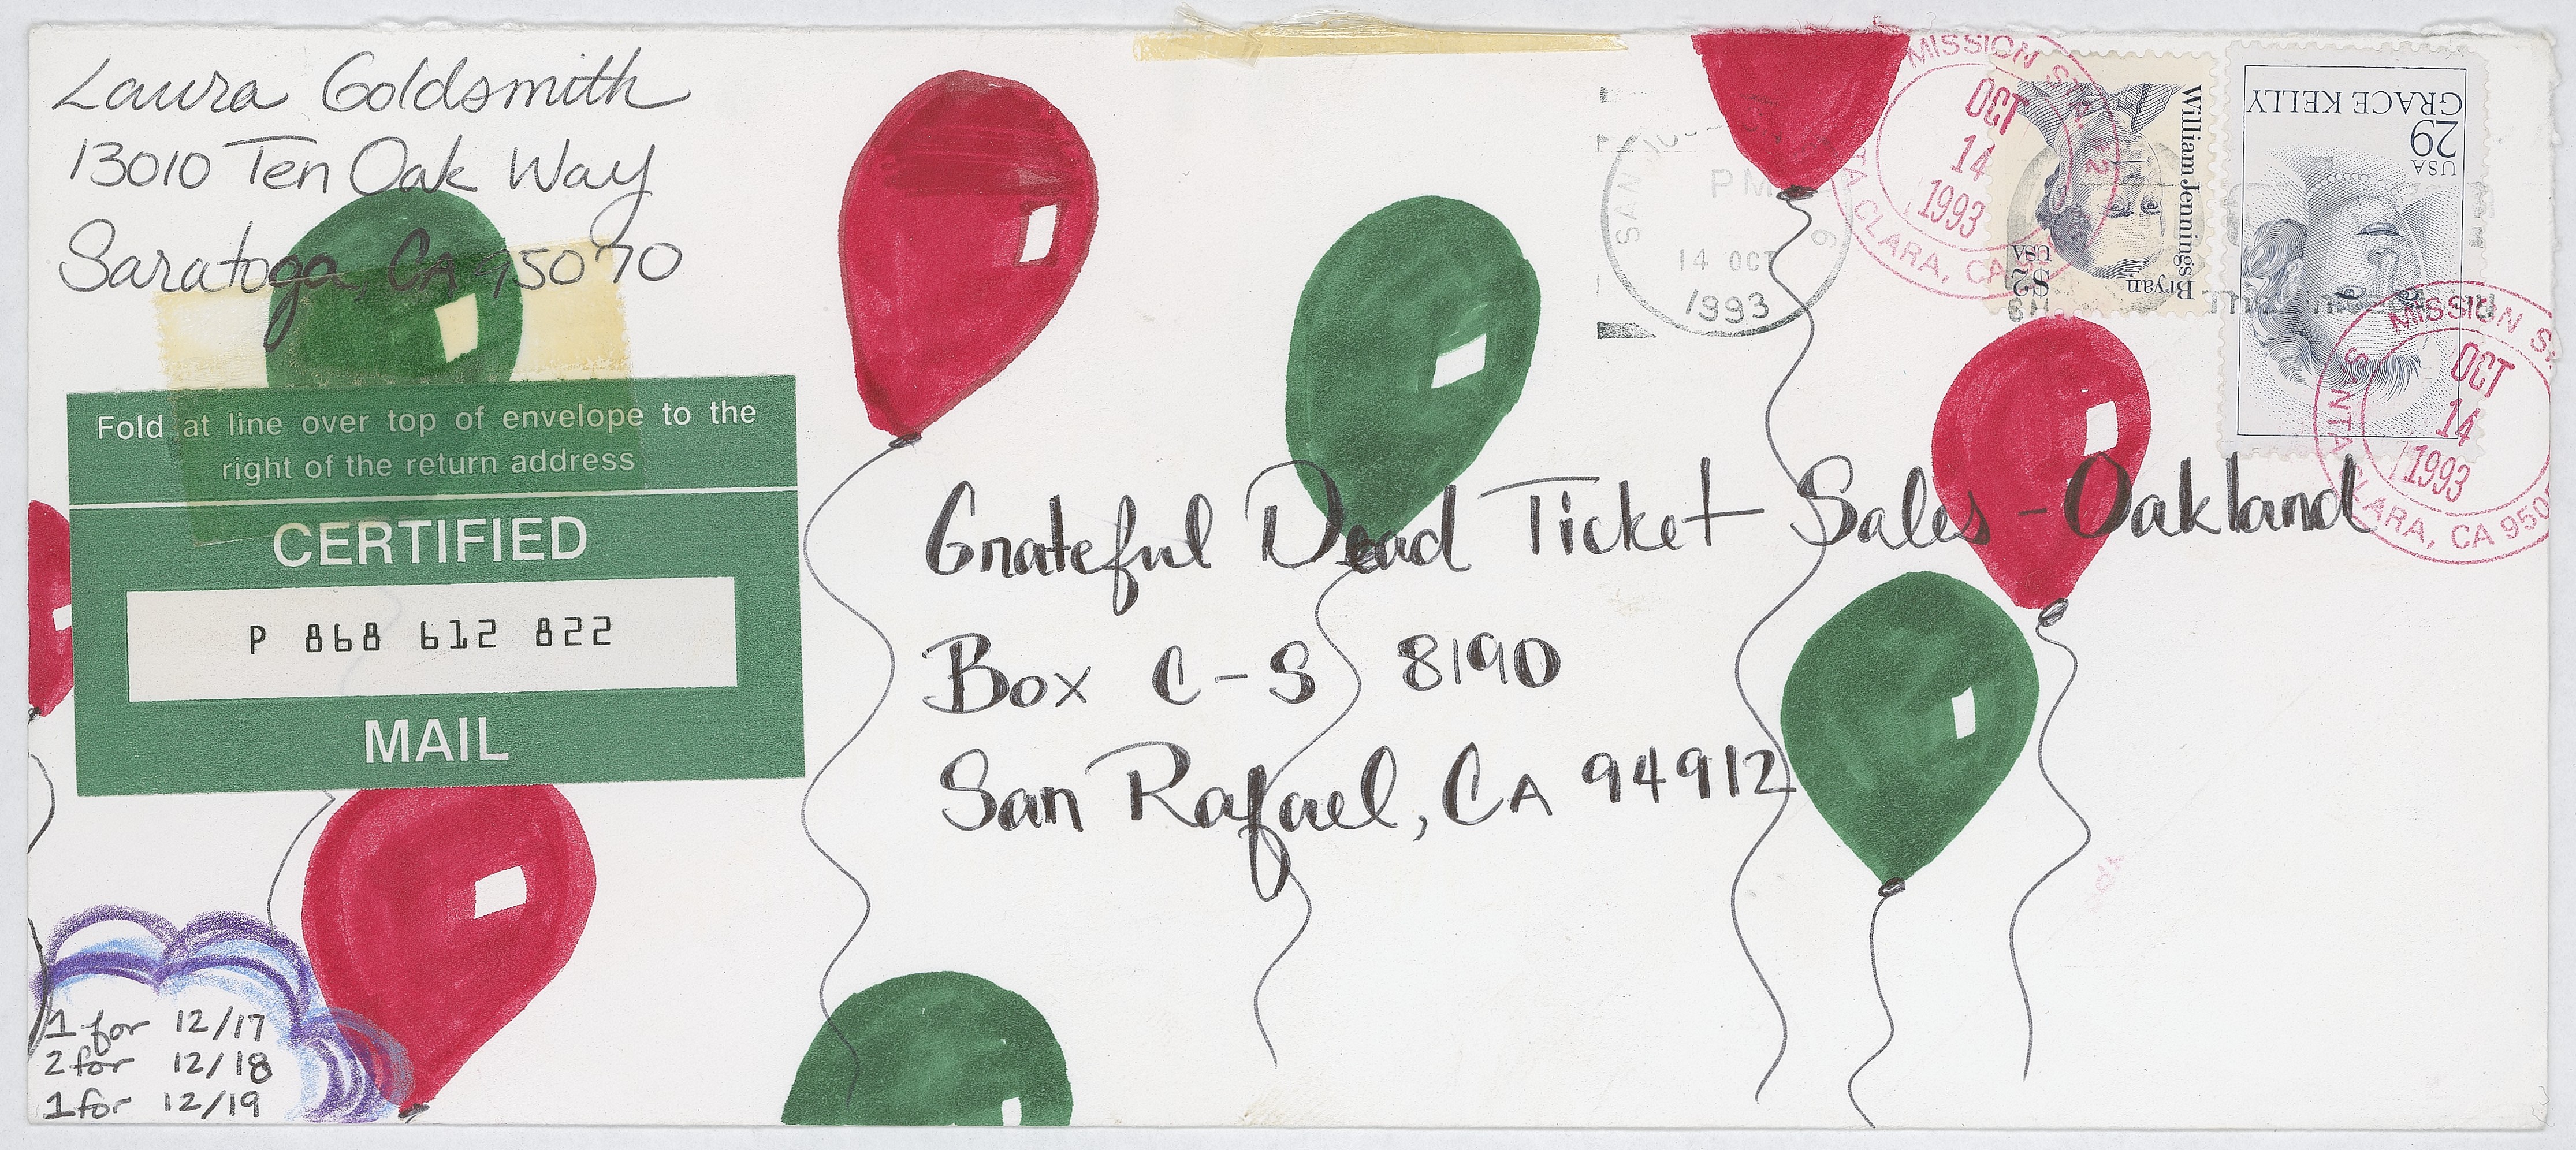 Laura Goldsmith
13010 Ten Oak Way
Saratoga, CA 95070
Fold at line over top of envelope to the
right of the return address
CERTIFIED
P 868 612 822
MAIL
1 for 12/17
2 for 12/18
1 for 12/19
Grateful Dead Ticket Sales - Oakland
Box C-S 8190
San Rafael, CA 94912
SAN
PM
14 OCT
1993
MISSION
OCT
14
1993
CLARA, CA
William Jennings
Bryan
USA
$2
GRACE KELLY
29
USA
MISSION
OCT
14
1993
SANTA CLARA, CA 950